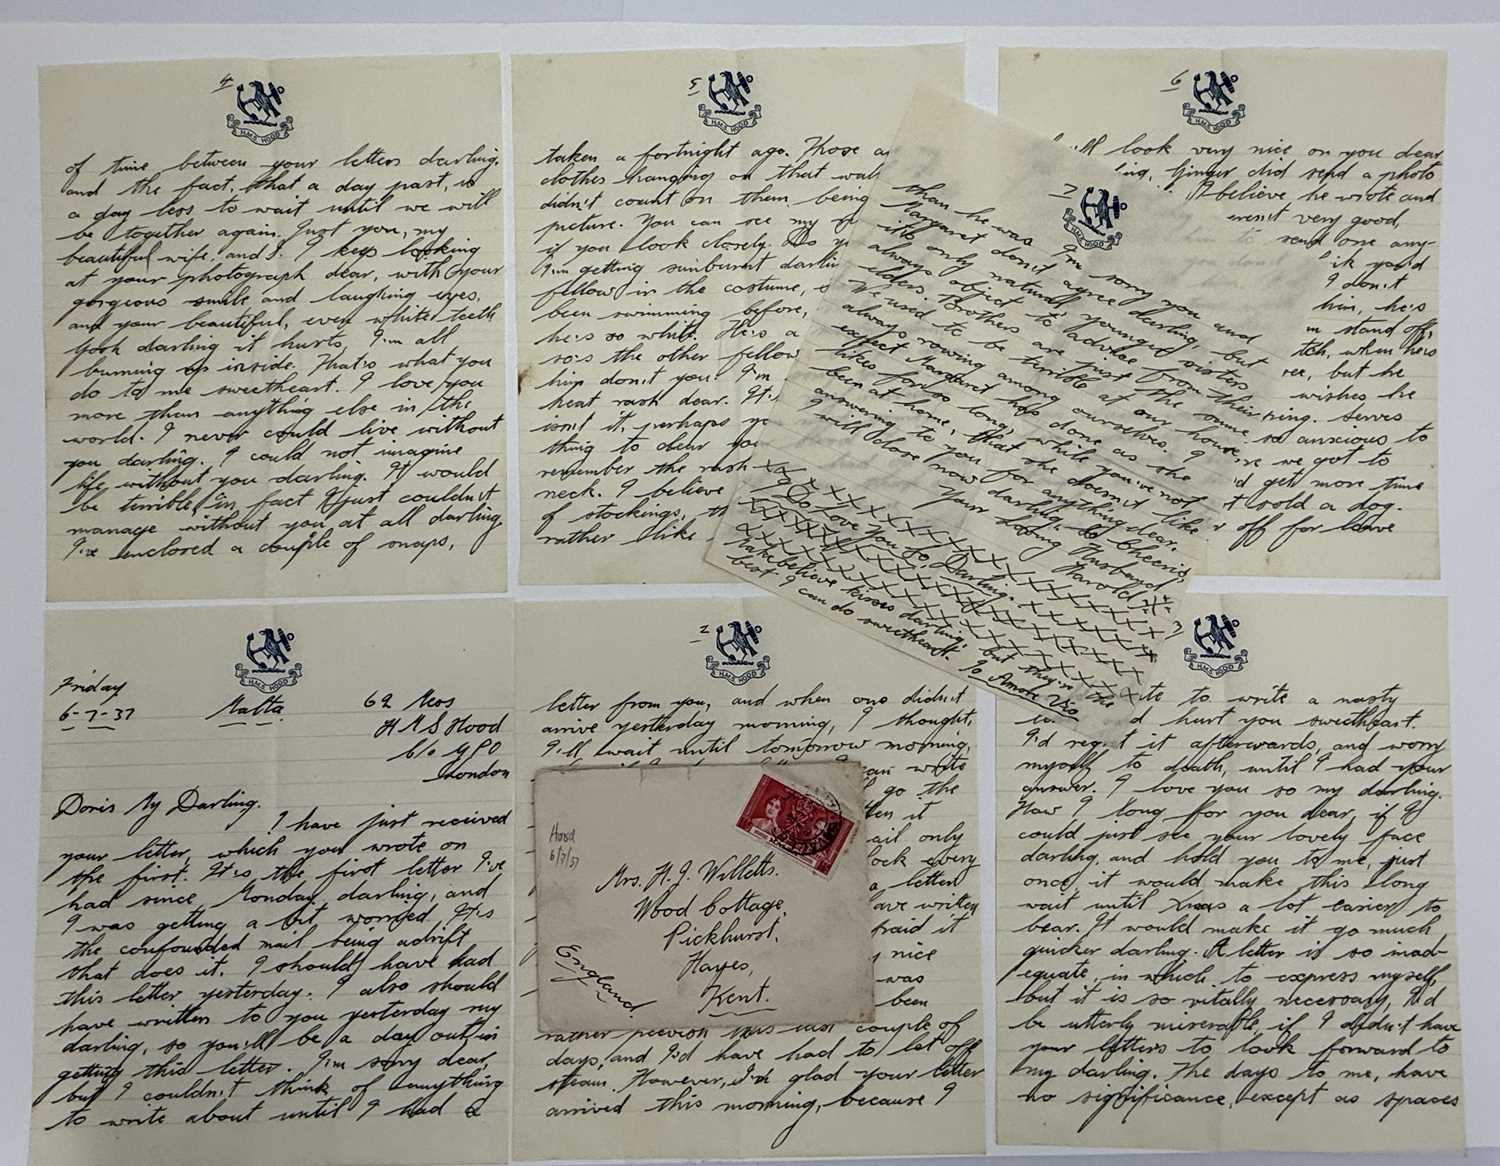 4
H.M.S. HOOD
of time between your letters darling.
and the fact, that a day past, is
a day less to wait until we will
be together again. Just you, my
beautiful wife, and I. I keep looking
at your photograph dear, with your
gorgeous smile and laughing eyes,
and your beautiful, even white teeth
Gosh darling it hurts, I'm all
burning up inside. That's what you
do to me sweetheart. I love you
more than anything else in the
world. I never could live without
you darling. I could not imagine
life without you darling. It would
be terrible, in fact I just couldn't
manage without you at all darling.
I've enclosed a couple of snaps,
5
H.M.S. HOOD
taken a fortnight ago. Those
clothes hanging on that
didn't count on them being
picture. You can see my
if you look closely. Do
I'm getting sunburnt
fellow in the costume,
been swimming before,
he's so white. He's a
so's the other fellow
him don't you? I'm
heat rash dear. It's
isn't it, perhaps
thing to clear
remember the rash
neck. I believe
of stockings,
rather like
6
H.M.S. HOOD
look very nice on you dear
Ginger did send a photo
I believe he wrote and
weren't very good,
send one any-
you'd
I don't
him, he's
stand off,
when he's
but he
wishes he
serves
so anxious to
we got to
get more time
sold a dog.
off for leave
7
H.M.S. HOOD
than he was. I'm sorry you and
Margaret don't agree darling, but
it's only natural, younger sisters
always object to advice from their
elders. Brothers are just the same.
We used to be terrible at our house,
always rowing among ourselves. I
expect Margaret has done as she
likes for so long, while you've not
been at home, that she doesn't like
answering to you for anything dear.
I will close now darling, so Cheerio,
Your loving Husband
Harold
I Do Love You So, Darling.
Makebelieve kisses darling, but they're the
best I can do sweetheart. Io Amore Vio
H.M.S. HOOD
Friday
6-7-37
Malta
62 Mess
H M S Hood
c/o G P O
London
Doris My Darling.
I have just received
your letter, which you wrote on
the first. It's, the, first letter I've
had since Monday, darling, and
I was getting a bit worried. It's
the confounded mail being adrift
that does it. I should have had
this letter yesterday. I also should
have written to you yesterday my
darling, so you'll be a day out in
getting this letter. I'm sorry dear,
but I couldn't think of anything
to write about until I had a
2
H.M.S. HOOD
letter from you, and when one didn't
arrive yesterday morning, I thought,
I'll wait until tomorrow morning,
write
go the
it
mail only
every
a letter
have written
afraid it
nice
was
been
rather peevish this last couple of
days, and I'd have had to let off
steam. However, I'm glad your letter
arrived this morning, because I
Hood
6/7/37
Mrs. H. J. Willetts.
Wood Cottage,
Pickhurst,
Hayes,
Kent.
England
3
H.M.S. HOOD
to write a nasty
hurt you sweetheart.
I'd regret it afterwards, and worry
myself to death, until I had your
answer. I love you so my darling.
How I long for you dear, if I
could just see your lovely face
darling, and hold you to me, just
once, it would make this long
wait until Xmas a lot easier to
bear. It would make it go much
quicker darling. A letter is so inad-
equate, in which to express myself,
but it is so vitally necessary, I'd
be utterly miserable, if I didn't have
your letters to look forward to
my darling. The days to me, have
no significance, except as spaces